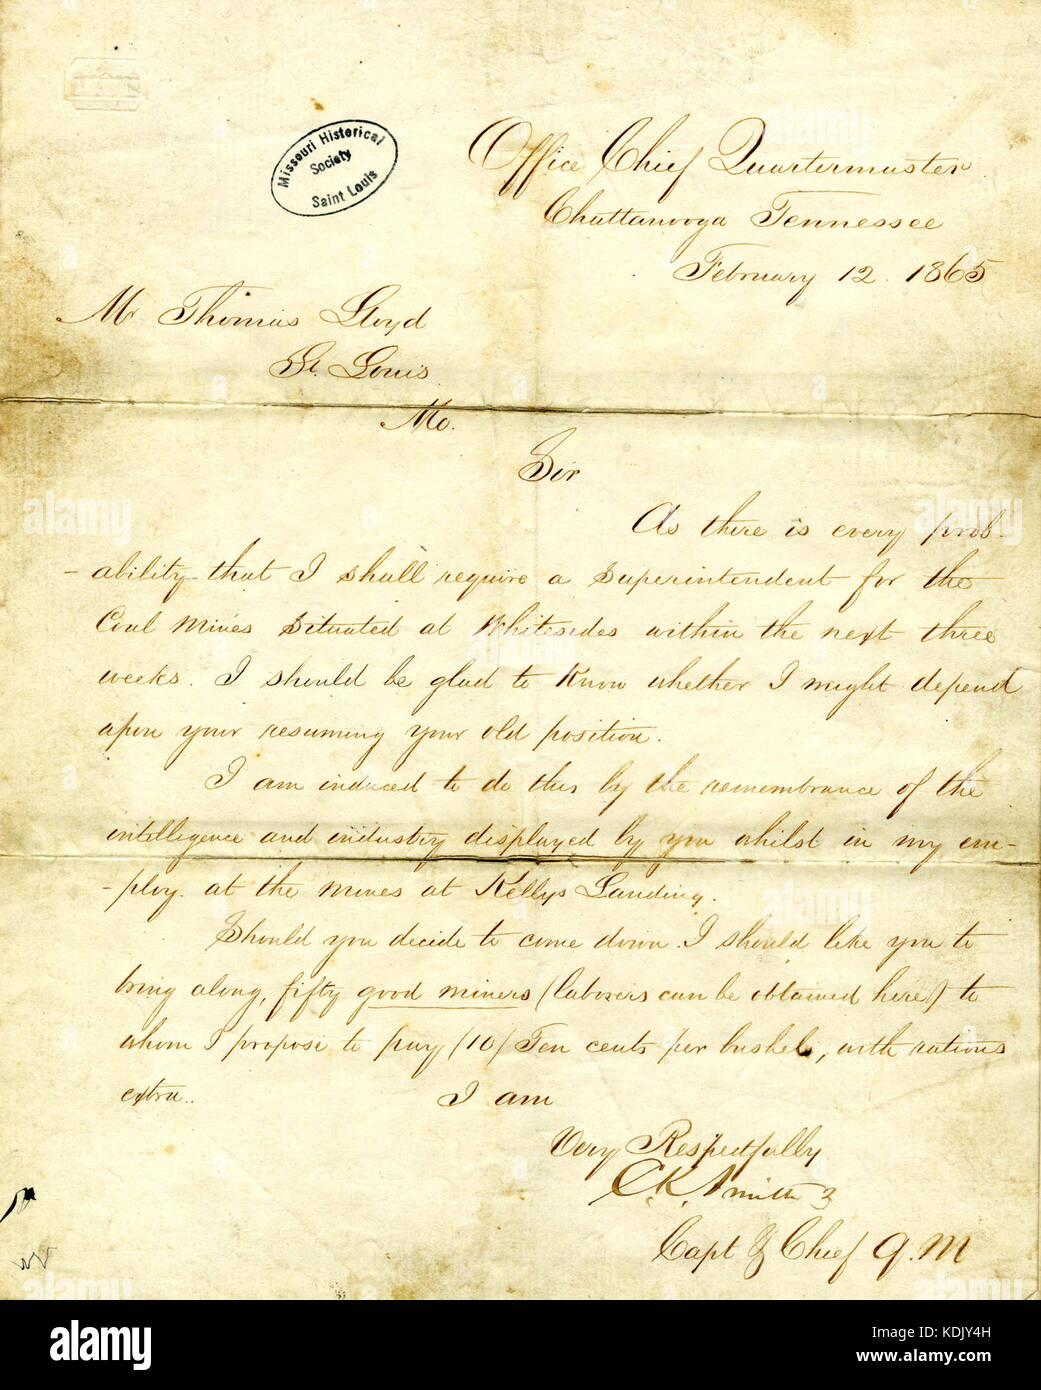 Missouri Historical
Society
Saint Louis
Office Chief Quartermaster
Chattanooga Tennessee
February 12. 1865
Mr Thomas Lloyd
St. Louis
Mo.
Sir
As there is every prob-
-ability that I shall require a Superintendent for the
Coal Mines Situated at Whitesides within the next three
weeks. I should be glad to Know whether I might depend
upon your resuming your old position.
I am induced to do this by the remembrance of the
intelligence and industry displayed by you whilst in my em-
-ploy. at the mines at Kellys Landing.
Should you decide to come down. I should like you to
bring along, fifty good miners (laborers can be obtained here) to
whom I propose to pay (10) Ten cents per bushel, with rations
extra..
I am
Very Respectfully
C.K. Smith
Capt & Chief Q.M
alamy
Image ID: KDJY4H
www.alamy.com